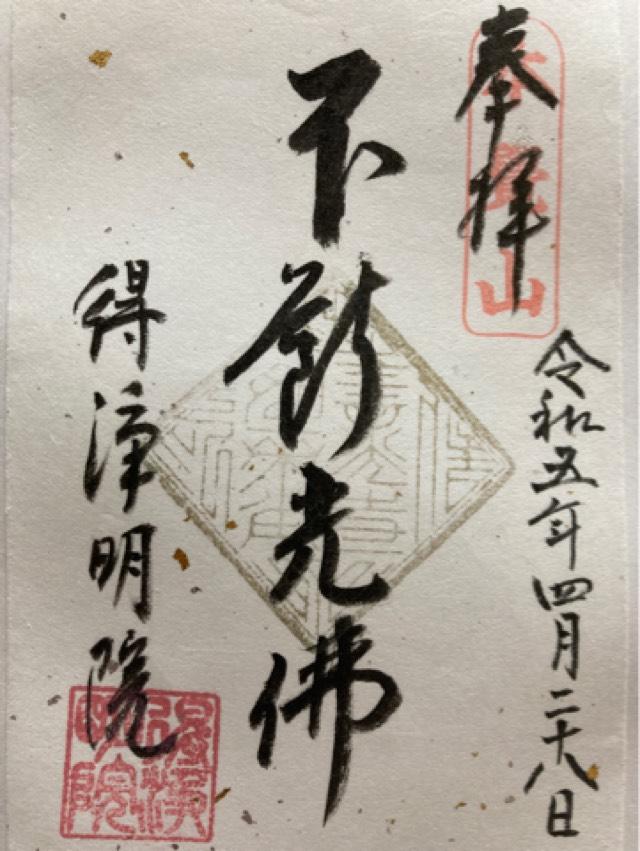 奉拝
山
令和五年四月二十八日
不断光佛
得浄明院
得浄明院